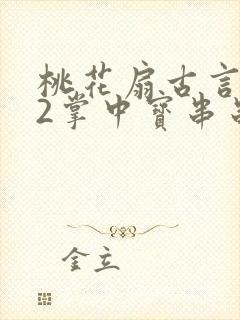 桃花扇古言
2掌中寶串
金立